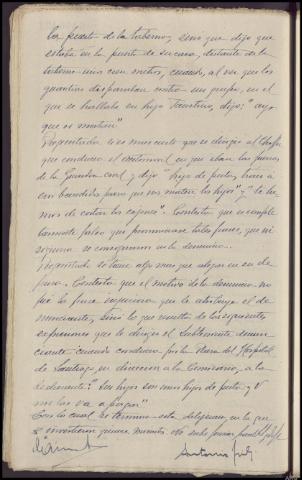 la puerta de la taberna, sino que dijo que
estaba en la puerta de su casa, distante de la
taberna unos cien metros, cuando, al ver que los
guardias disparaban contra un grupo, en el
que se hallaba su hijo Faustino, dijo: "ay
que os matan"
Preguntada si es mas cierto que se dirigió al Chofer
que conducia el continental en que iban las fuerzas
de la Guardia civil y dijo "hijo de puta, traes a
esos bandidos para que nos maten los hijos" y "te he-
mos de cortar los cojones". Contesta que es comple-
tamente falso que pronunciase tales frases, que ni
siquiera se consignaron en la denuncia.
Preguntada si tiene algo mas que alegar en su de-
fensa. Contesta que el motivo de la denuncia no
fué la frase injuriosa que le atribuye el de-
nunciante, sino la que resulta de las siguientes
expresiones que le dirigió el Subteniente denun-
ciante cuando conducia por la Plaza del Hospital
de Santiago en dirección a la Comisaria, a la
declarante: "Sus hijos son unos hijos de puta, y V
me las va a pagar"
Con lo cual se termina esta diligencia, en la que
se invirtieron quince minutos. No sabe firmar
Antonio